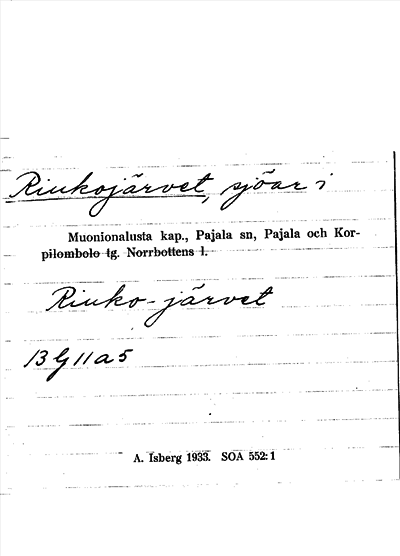 Riukojärvet, sjöar i
Muonionalusta kap., Pajala sn, Pajala och Kor-
pilombolo tg. Norrbottens l.
Riuko-järvet
13 G 11 a 5
A. Isberg 1933. SOA 552:1